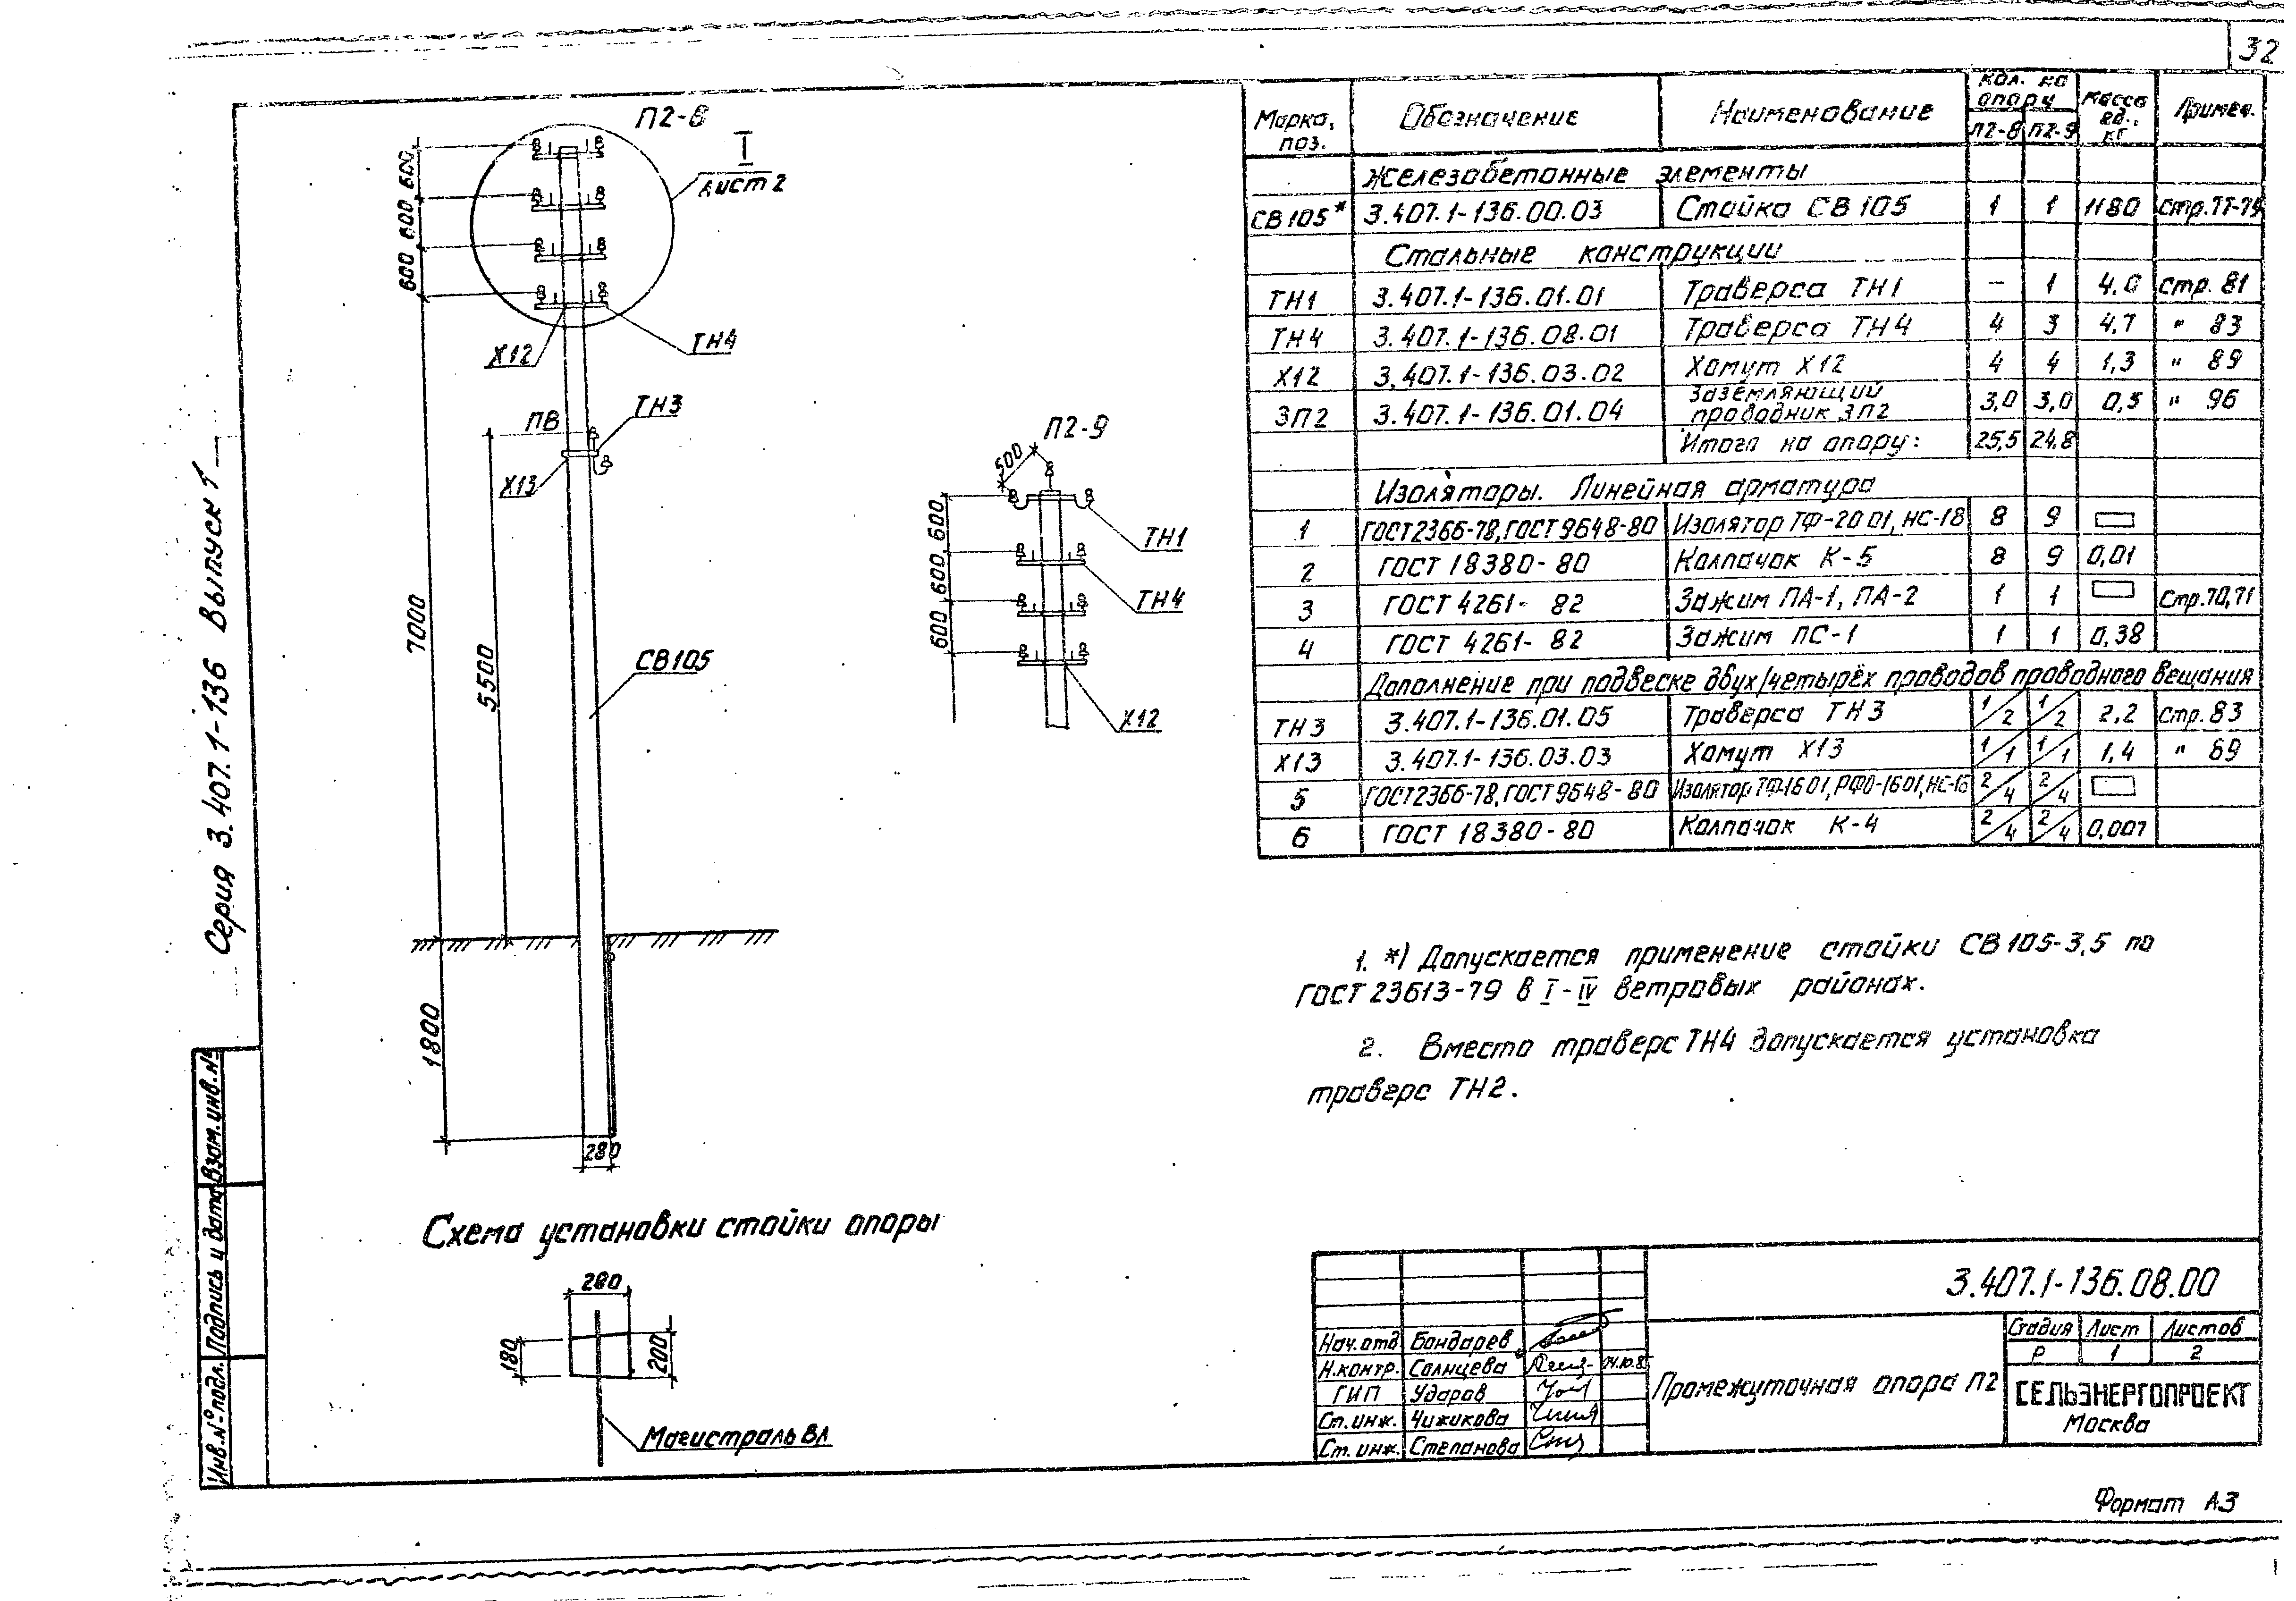 32
Серия 3.407.1-136 Выпуск 1
П2-8
I
лист 2
600 600 600
Х12
ТН4
ПВ
ТН3
Х13
7000
5500
СВ105
1800
280
П2-9
500
600 600 600
ТН1
ТН4
Х12
Схема установки стойки опоры
280
180
200
Магистраль ВЛ
Марка, поз. Обозначение Наименование Кол. на опору Масса ед., кг Примеч.
П2-8 П2-9
Железобетонные элементы
СВ105* 3.407.1-136.00.03 Стойка СВ105 1 1 1180 Стр.77-79
Стальные конструкции
ТН1 3.407.1-136.01.01 Траверса ТН1 – 1 4,0 Стр. 81
ТН4 3.407.1-136.08.01 Траверса ТН4 4 3 4,7 " 83
Х12 3.407.1-136.03.02 Хомут Х12 4 4 1,3 " 89
ЗП2 3.407.1-136.01.04 Заземляющий проводник ЗП2 3,0 3,0 0,5 " 96
Итого на опору: 25,5 24,8
Изоляторы. Линейная арматура
1 ГОСТ2366-78, ГОСТ9648-80 Изолятор ТФ-2001, НС-18 8 9
2 ГОСТ 18380-80 Колпачок К-5 8 9 0,01
3 ГОСТ 4261-82 Зажим ПА-1, ПА-2 1 1 Стр.70,71
4 ГОСТ 4261-82 Зажим ПС-1 1 1 0,38
Дополнение при подвеске двух/четырёх проводов проводного вещания
ТН3 3.407.1-136.01.05 Траверса ТН3 1/2 1/2 2,2 Стр. 83
Х13 3.407.1-136.03.03 Хомут Х13 1/1 1/1 1,4 " 89
5 ГОСТ2366-78, ГОСТ9648-80 Изолятор ТФ-1601, РФО-1601, НС-16 2/4 2/4
6 ГОСТ 18380-80 Колпачок К-4 2/4 2/4 0,007
1. *) Допускается применение стойки СВ105-3,5 по
ГОСТ 23613-79 в I-IV ветровых районах.
2. Вместо траверс ТН4 допускается установка
траверс ТН2.
Взам.инв.№
Подпись и дата
Инв.№ подл.
3.407.1-136.08.00
Нач.отд. Бондарев
Н.контр. Солнцева
ГИП Ударов
Ст.инж. Чижикова
Ст.инж. Степанова
Промежуточная опора П2
Стадия Лист Листов
Р 1 2
СЕЛЬЭНЕРГОПРОЕКТ
Москва
Формат А3